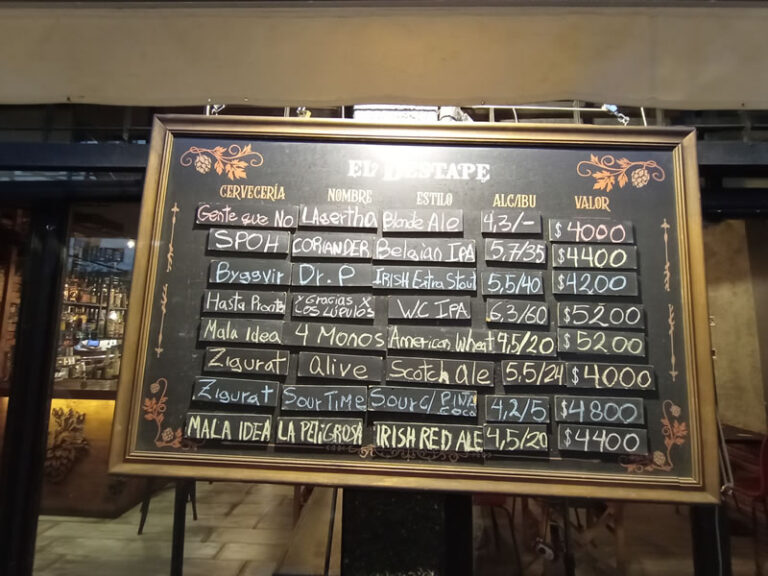 EL DESTAPE
CERVECERÍA NOMBRE ESTILO ALC/IBU VALOR
Gente que No LAgertha Blonde Ale 4,3/- $4000
SPOH CORIANDER Belgian IPA 5,7/35 $4400
Byggvir Dr. P IRISH Extra Stout 5,5/40 $4200
Hasta Pronto x Gracias x LOS LÚPULOS WC IPA 6,3/60 $5200
Mala Idea 4 Monos American Wheat 4,5/20 $5200
Zigurat alive Scotch Ale 5,5/24 $4000
Zigurat Sour TIME Sour C/ PIÑA COCO 4,2/5 $4800
MALA IDEA LA PELIGROSA IRISH RED ALE 4,5/20 $4400